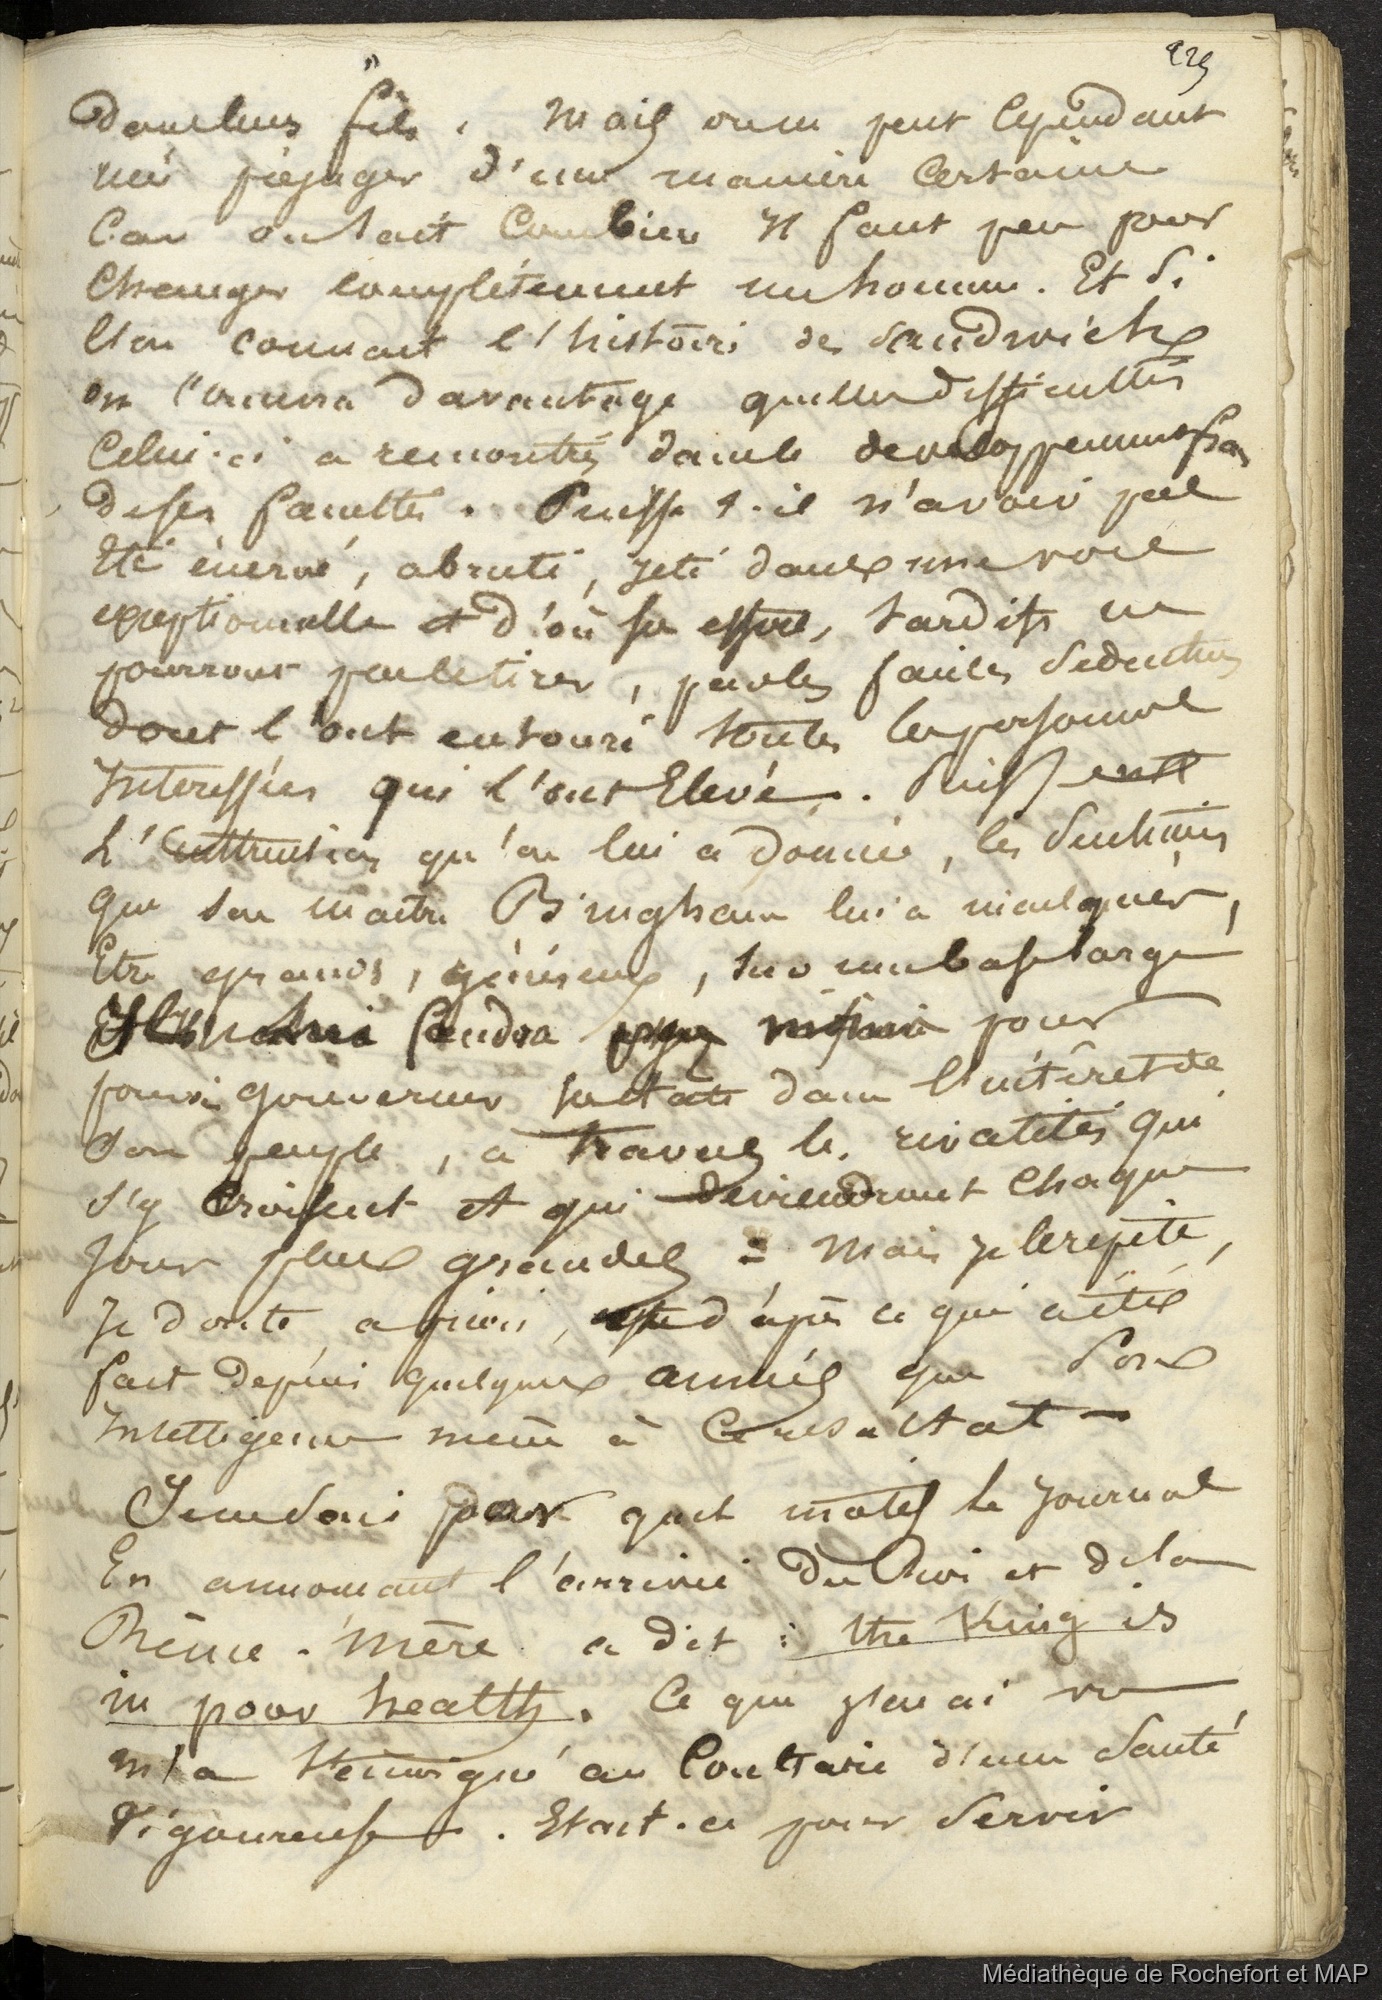 229
dans leurs fils. Mais on ne peut cependant
rien préjuger d'une manière certaine
Car on sait Combien Il faut peu pour
Changer complètement un homme. Et Si
l'on connait l'histoire des Sandwich
on davantage quelles difficultés
Celui-ci a rencontrés dans le developpement
de ses facultés. Puisse t-il n'avoir pas
Été énervé, abruti, jeté dans une voie
exceptionnelle et d'où ses efforts tardifs ne
pourront pas le tirer, par les faciles Seductions
dont l'ont entouré toutes les personnes
Interessées qui l'ont Elevé. Puissent
L'instruction qu'on lui a donnée, les Sentimens
que son maitre Bingham lui a inculqués,
Etre grands, généreux, sur une base large
Il lui faudra pour
pouvoir gouverner ses états dans l'intérêt de
Son peuple, à travers les rivalités qui
S'y croisent et qui deviendront Chaque
Jour plus grandes = Mais je le repète,
Je doute a priori, d'après ce qui a été
fait depuis quelques années que Son
Intelligence mène à Ce resultat —
Je ne Sais par quel motif le Journal
En annoncant l'arrivée du Roi et de la
Reine-Mère a dit : the King is
in poor health. Ce que j'en ai vu
m'a témoigné au Contraire d'une Santé
Vigoureuse. Etait-ce pour Servir
Médiathèque de Rochefort et MAP